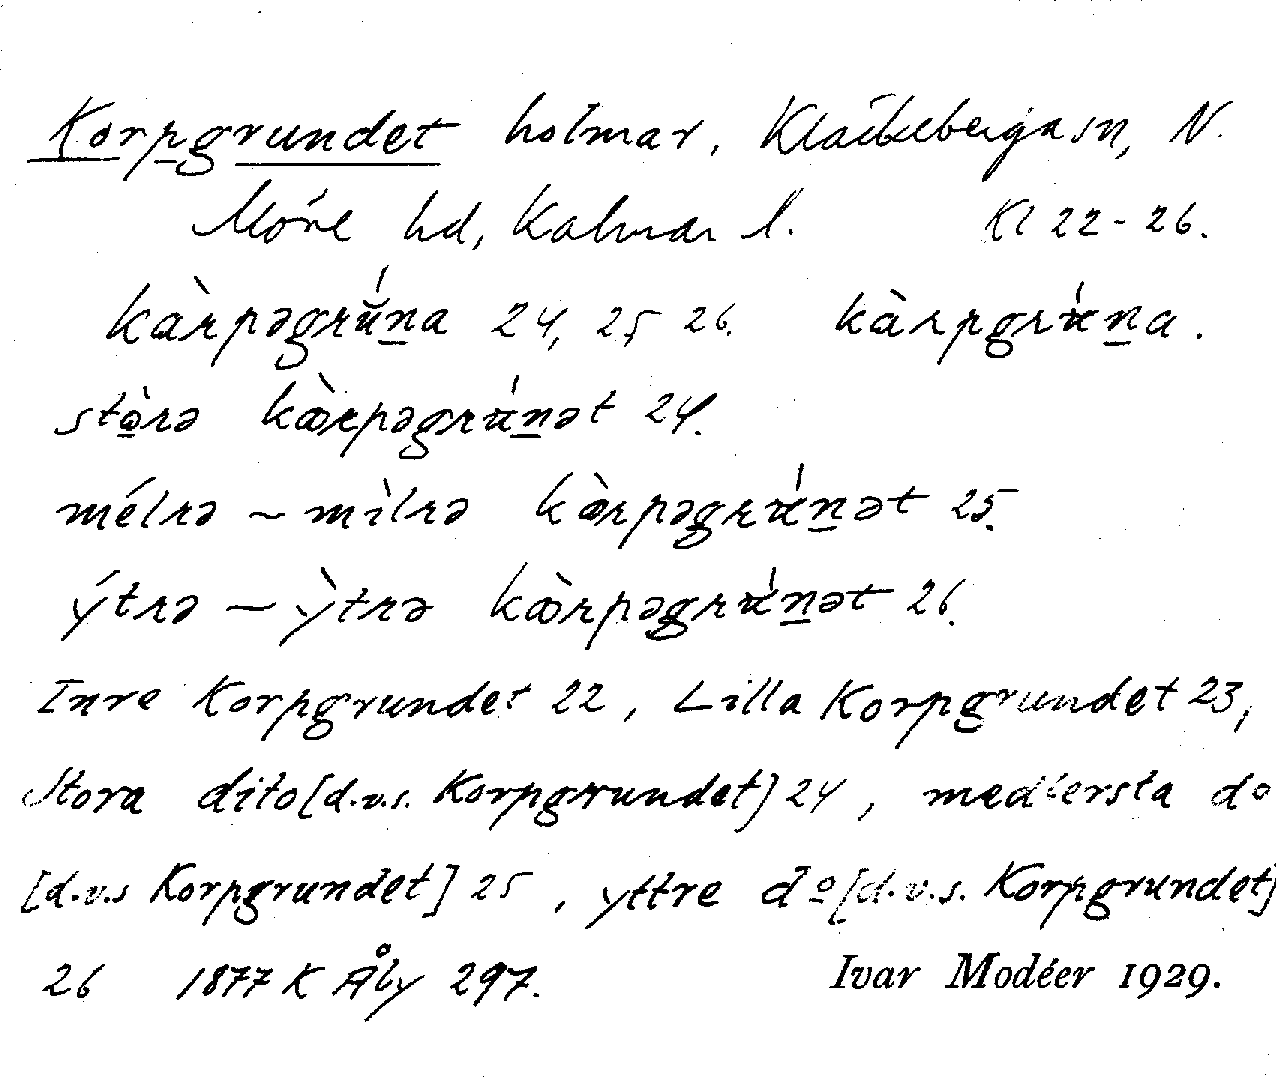 Korpgrundet holmar, Kläckebergasn, N.
Möre hd, Kalmar l. Kl 22-26.
kàrpəgrúna 24, 25 26. kàrpgrúna.
stòrə kòrpəgrúnət 24.
mélrə ~ mìlrə kòrpəgrúnət 25.
ýtrə ~ ỳtrə kòrpəgrúnət 26.
Inre Korpgrundet 22, Lilla Korpgrundet 23,
Stora dito [d.v.s. Korpgrundet] 24, medlersta do
[d.v.s Korpgrundet] 25, yttre do [d.v.s. Korpgrundet]
26 1877 K Åby 297. Ivar Modéer 1929.